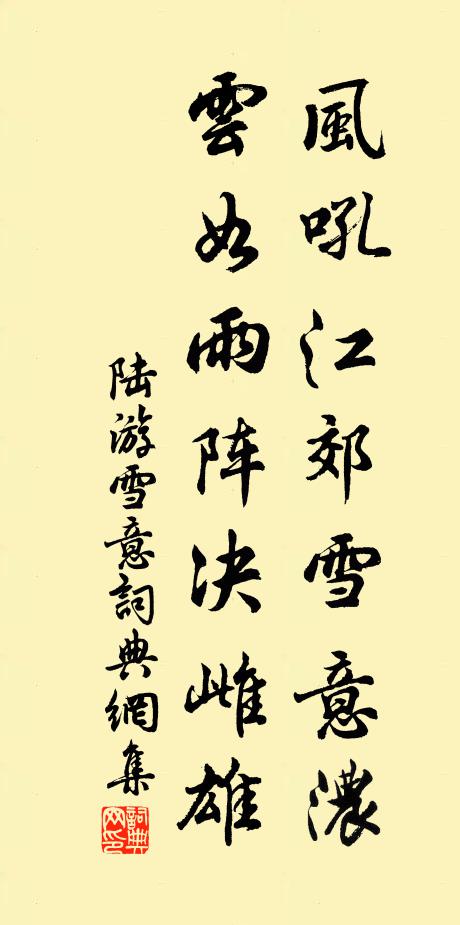 風吼江郊雪意濃
雲如雨阵决雌雄
陆游雪意詞典網集
詞典
网印